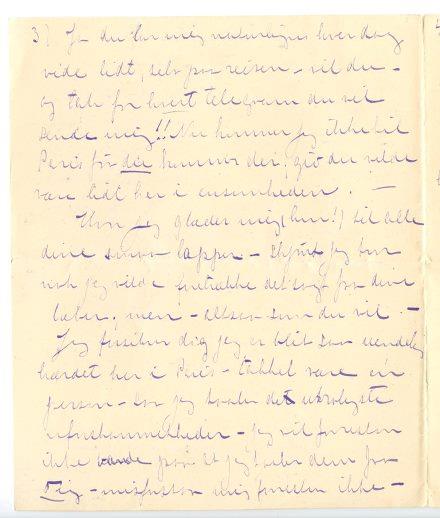 3) Ja du lar mig naturligvis hver dag
vide lidt, selv paa reisen – vil du –
og tak for hvert telegram du vil
sende mig!! Nu kommer jeg ikke til
Paris før du kommer der, gid du vilde
være lidt her i ensomheden. –
Hvor jeg glæder mig (hm!) til alle
dine smaa lapper – skjønt jeg tror
nok jeg vilde foretrække det sagt fra dine
læber, men – altsaa som du vil. –
Jeg forsikrer dig jeg er blit saa uendelig
hærdet her i Paris – takket være én
person – har jeg det utroligste
– jeg vil forresten
ikke paa at jeg dem fra
Dig – mig forresten ikke –